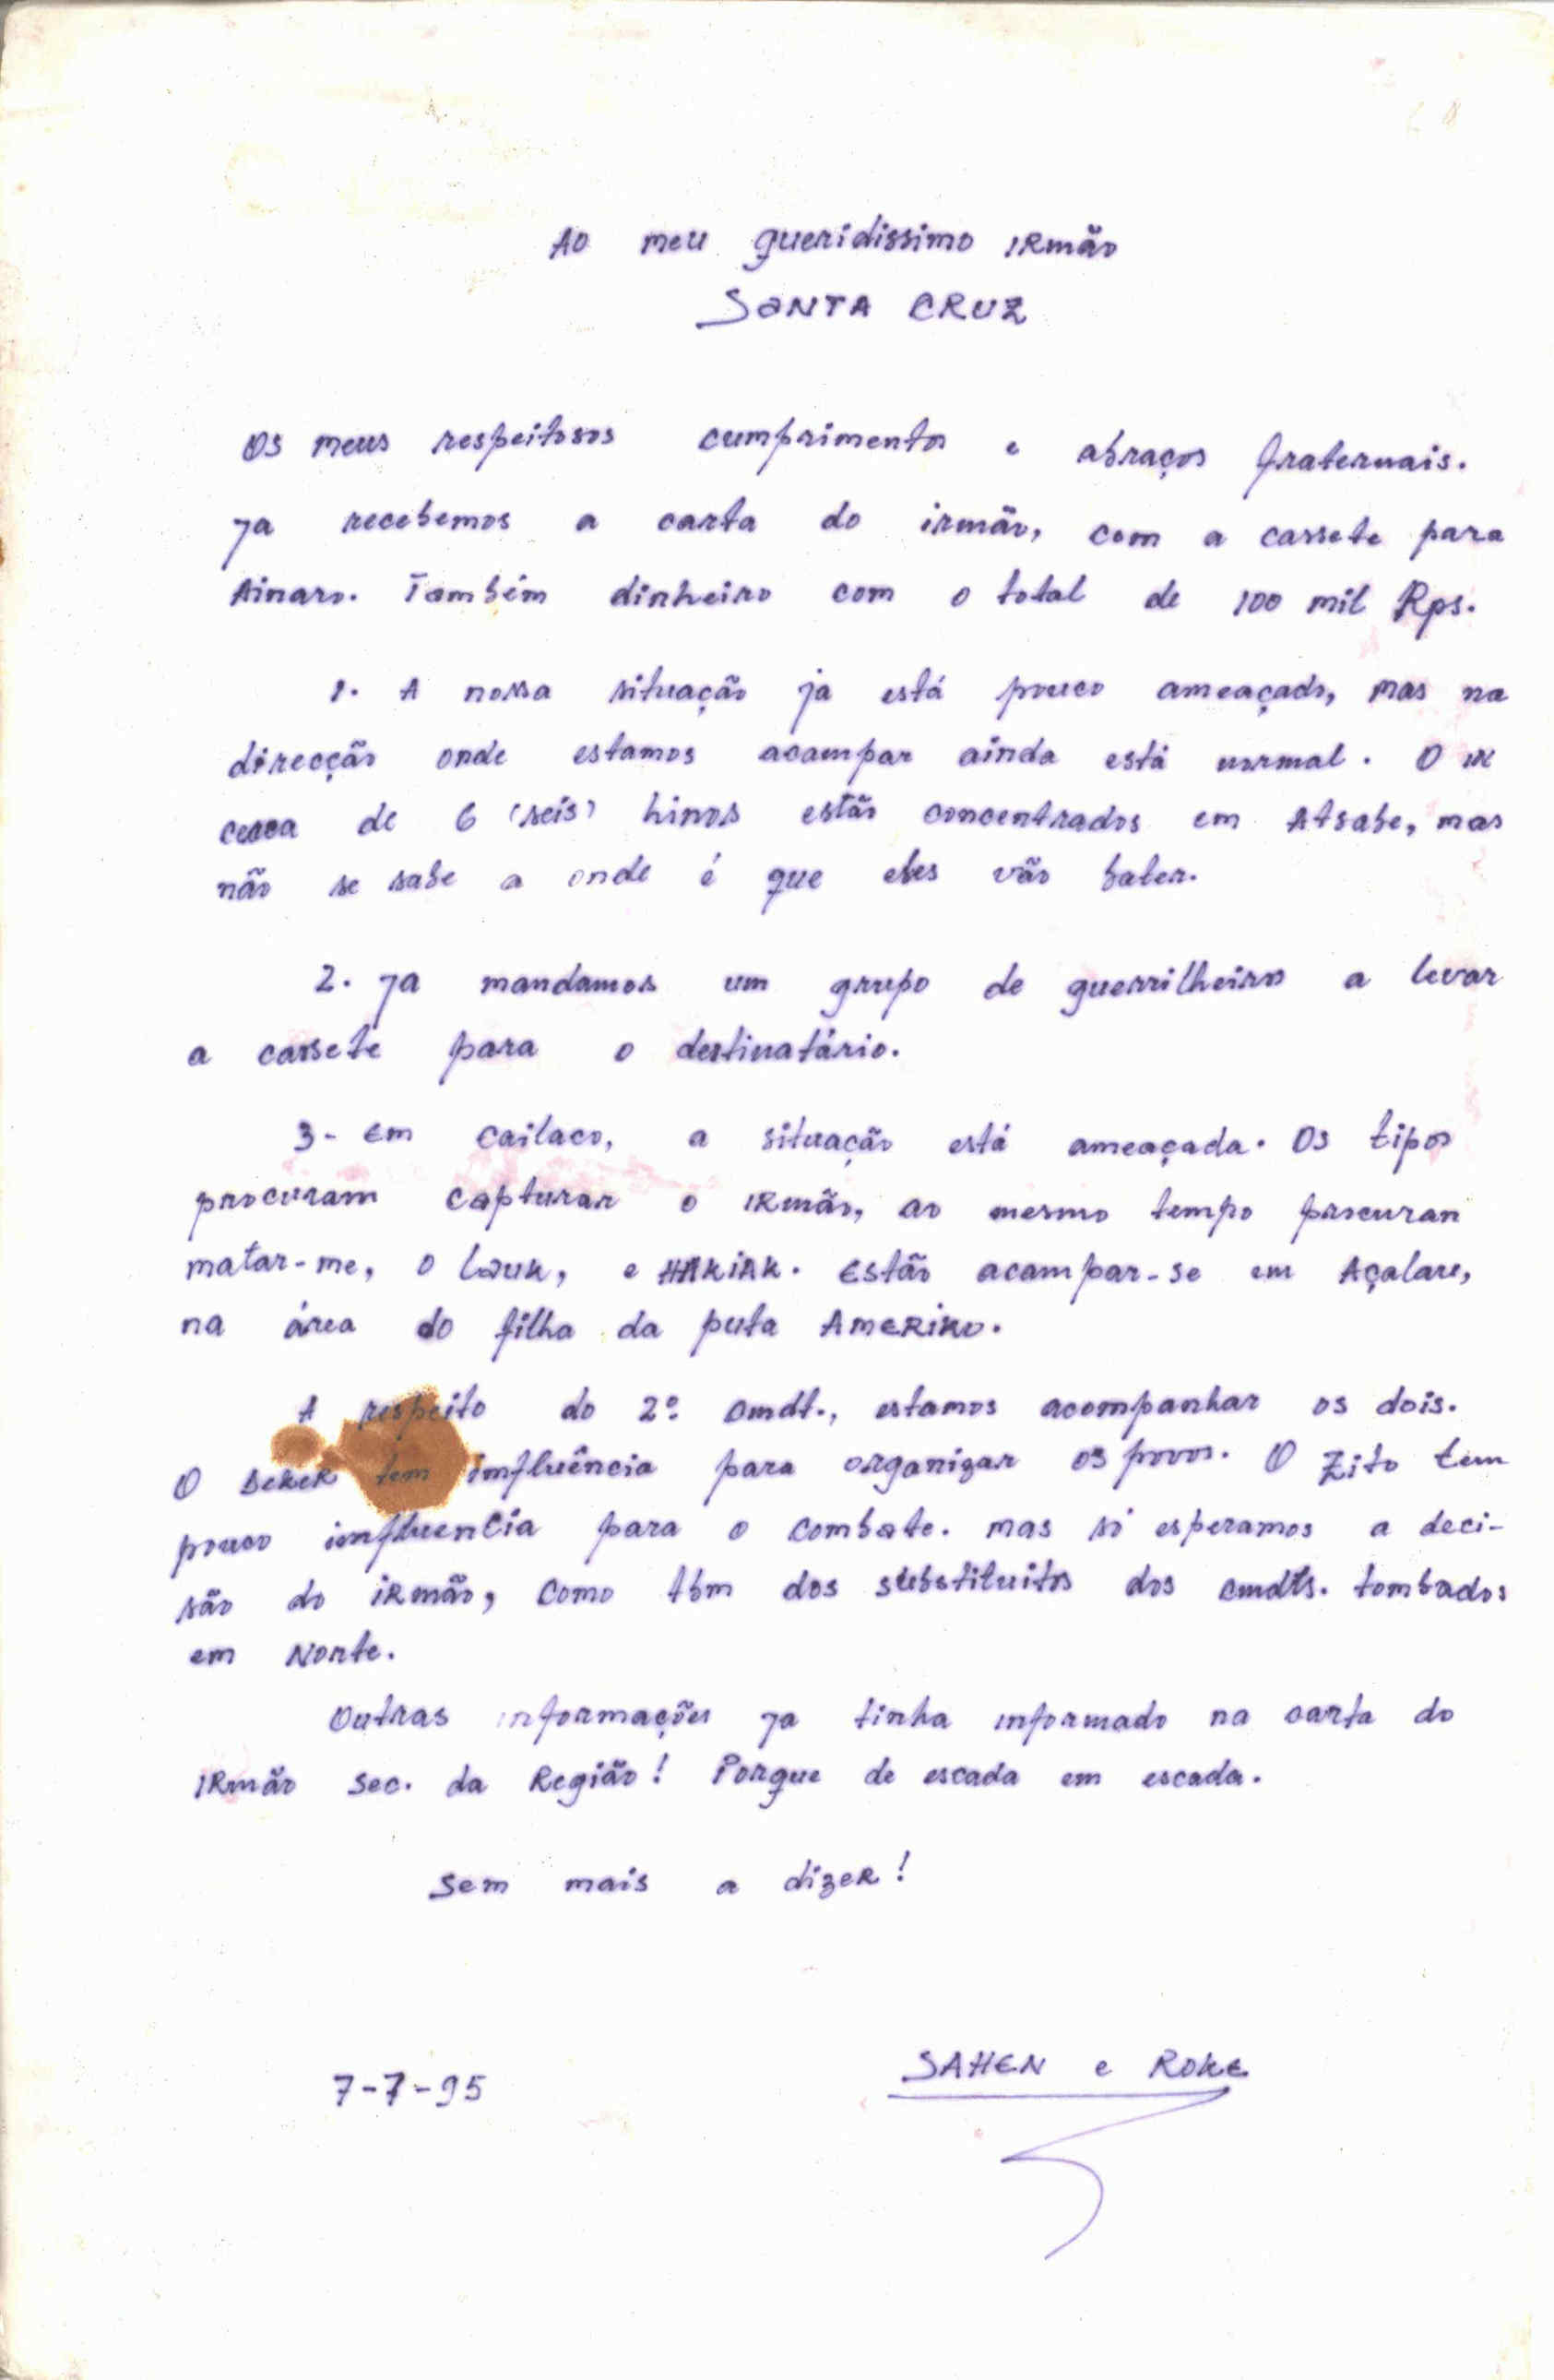 Ao meu queridissimo irmão
SANTA CRUZ
Os meus respeitosos cumprimentos e abraços fraternais.
Ja recebemos a carta do irmão, com a cassete para
Ainaro. Também dinheiro com o total de 100 mil Rps.
1. A nossa situação ja está pouco ameaçado, mas na
direcção onde estamos acampar ainda está normal. O
cerca de 6 (seis) hinos estão concentrados em Atsabe, mas
não se sabe a onde é que eles vão bater.
2. Ja mandamos um grupo de guerrilheiros a levar
a cassete para o destinatário.
3- Em Cailaco, a situação está ameaçada. Os tipos
procuram capturar o irmão, ao mesmo tempo procuran
matar-me, o Lauk, e HAKIAK. Estão acampar-se em Açalare,
na área do filha da puta AMERIKO.
A respeito do 2º Cmdt., estamos acompanhar os dois.
O BEREK tem influência para organizar os povos. O Zito tem
pouco influencia para o combate. mas só esperamos a deci-
são do irmão, como tbm dos substituitos dos cmdts. tombados
em Norte.
Outras informações ja tinha informado na carta do
irmão Sec. da Região! Porque de escada em escada.
Sem mais a dizer!
7-7-95
SAHEN e ROKE